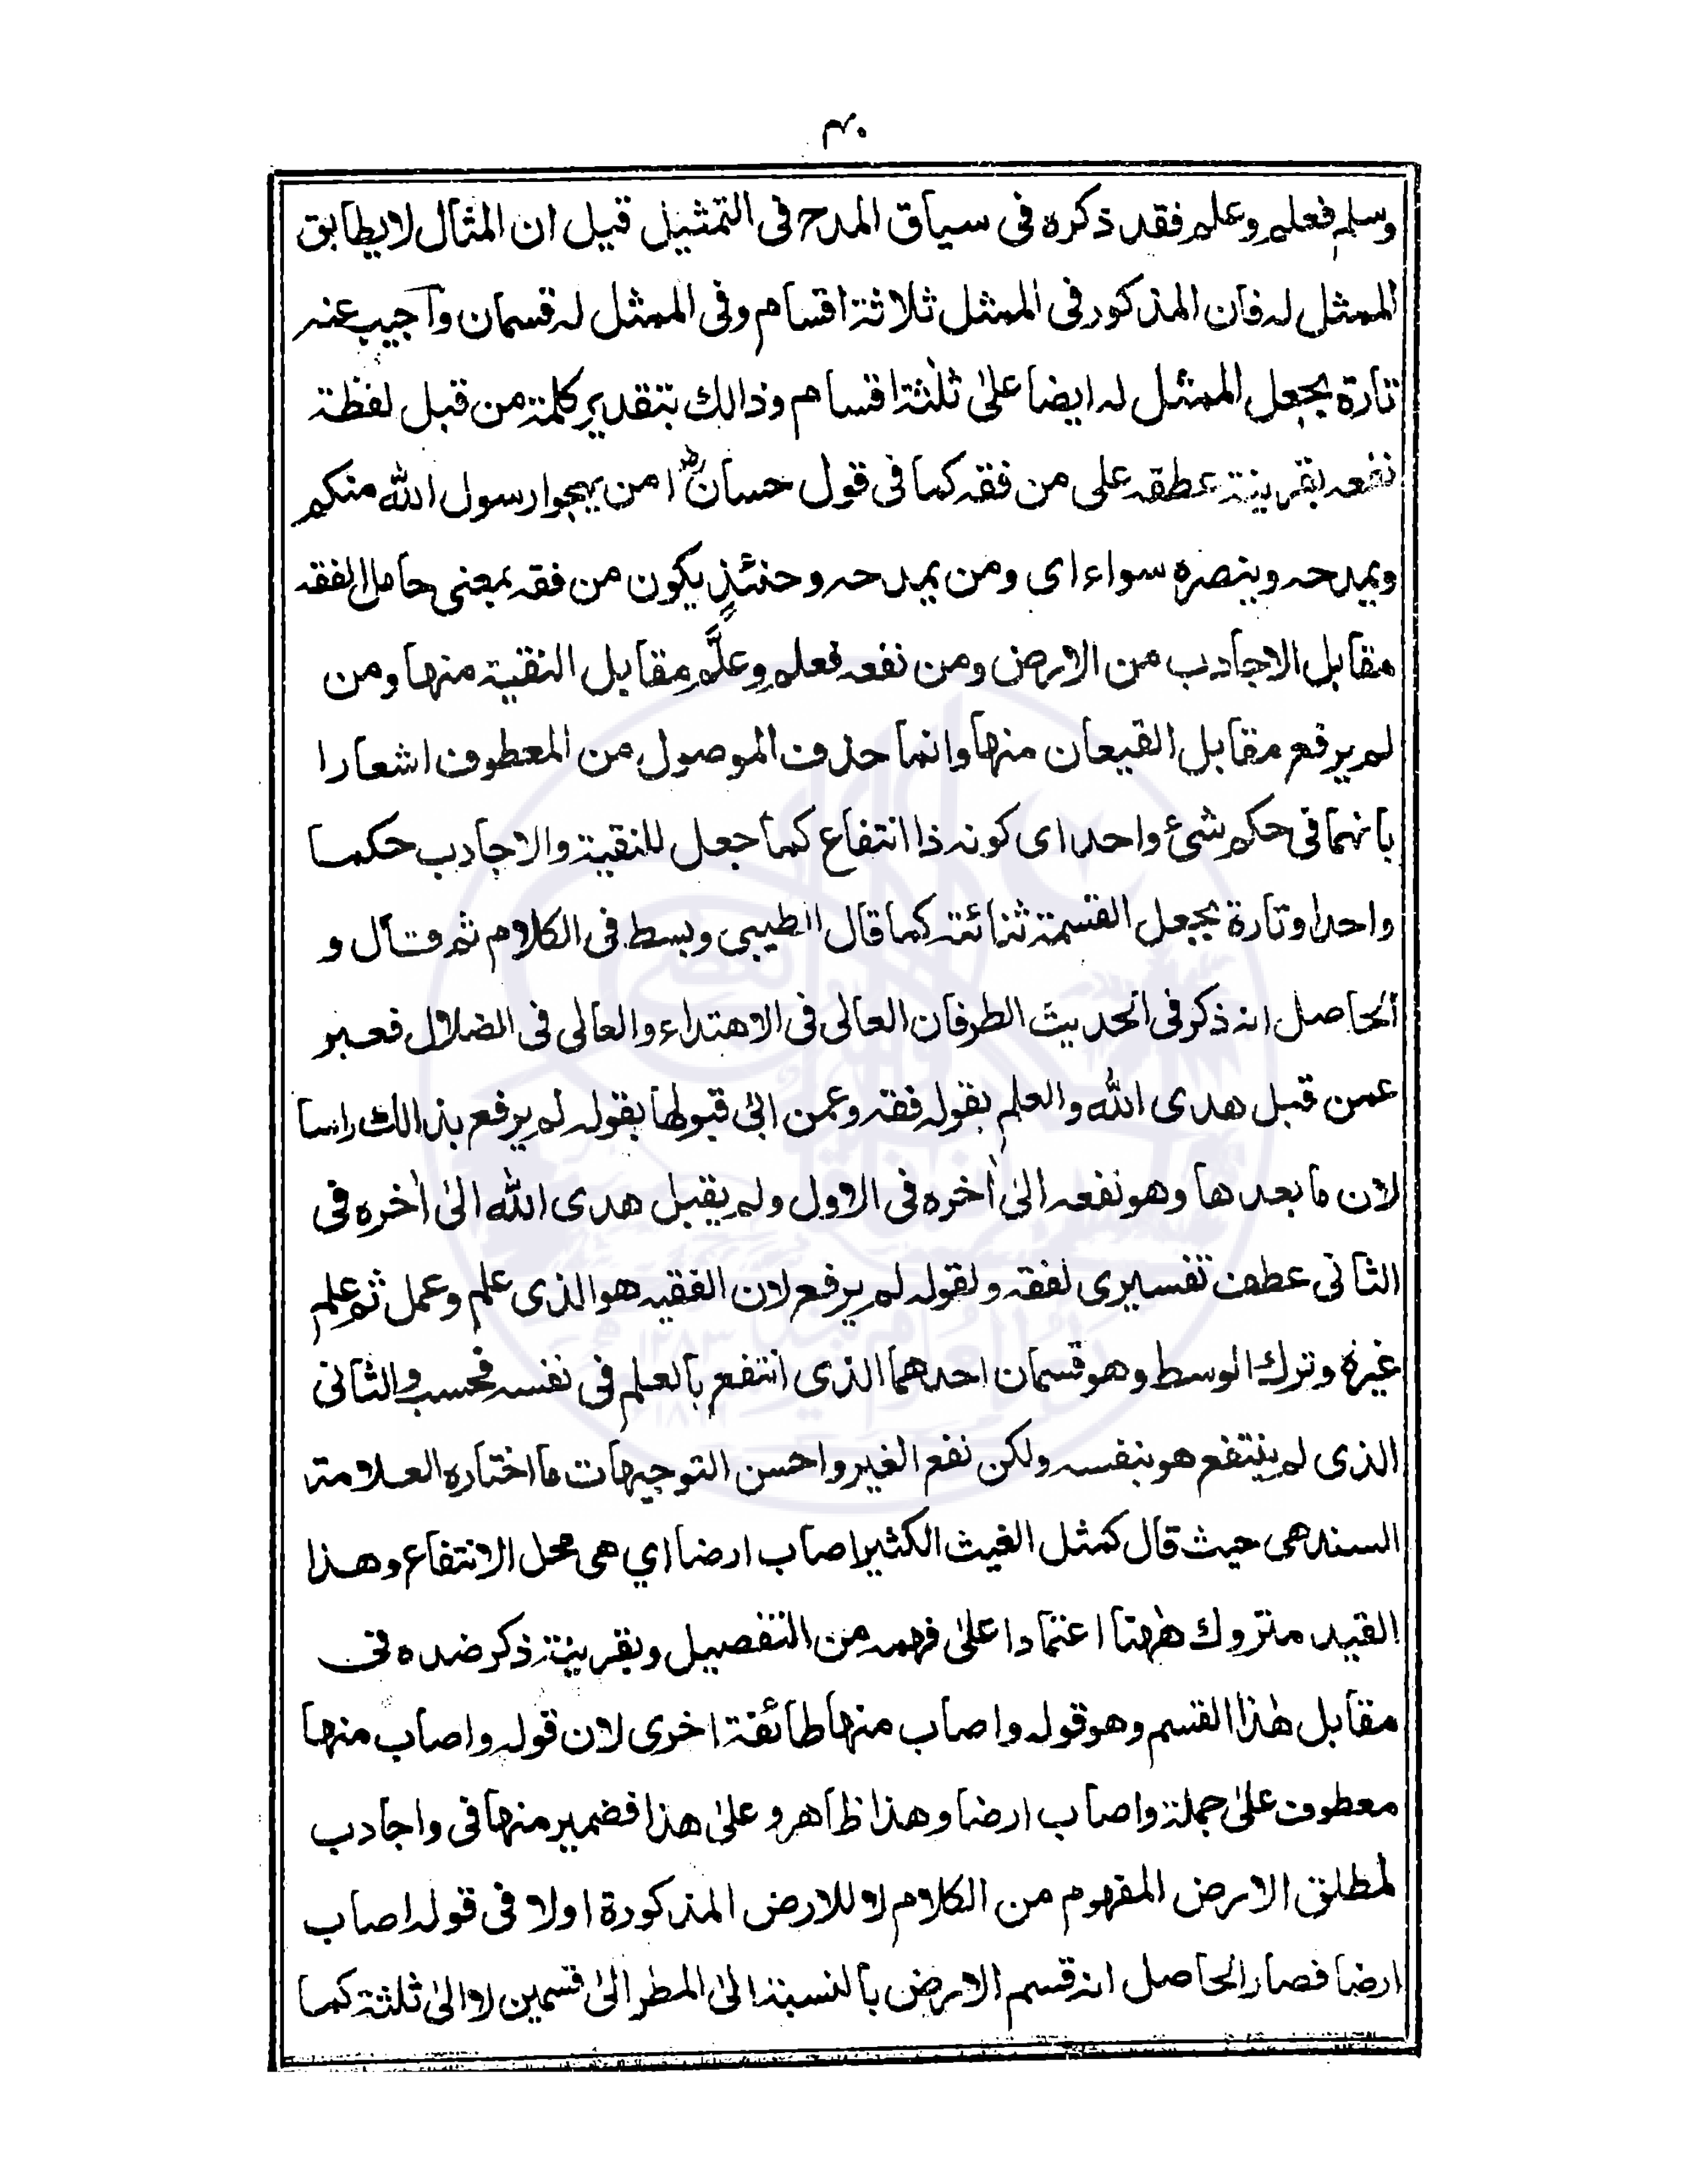 ۴۰
وسلم فعلم وعلم فقد ذكره فى سياق المدح فى التمثيل قيل ان المثال لا يطابق
الممثل له فان المذكور فى الممثل ثلاثة اقسام وفى الممثل له قسمان وآجيب عنه
تارة بجعل الممثل له ايضا علىٰ ثلٰثة اقسام وذالك بتقدير كلمة من قبل لفظة
نفعه بقرينة عطفه على من فقه كما فى قول حسانؓ امن يهجوا رسول الله منكم
ويمدحه وينصره سواء اى ومن يمدحه وحنئذٍ يكون من فقه بمعنى حامل الفقه
مقابل الاجادب من الارض ومن نفعه فعلم وعلَّم مقابل النقية منها ومن
لم يرفع مقابل القيعان منها وانما حذف الموصول من المعطوف اشعارا
بانهما فى حكم شئ واحد اى كونه ذا انتفاع كما جعل للنقية والاجادب حكما
واحدا وتارة بجعل القسمة ثنائة كما قال الطيبى وبسط فى الكلام ثم قال و
الحاصل انه ذكر فى الحديث الطرفان العالى فى الاهتداء والعالى فى الضلال فعبر
عمن قبل هدى الله والعلم بقوله فقه وعمن ابىٰ قبولها بقوله لم يرفع بذالك راسا
لان ما بعدها وهو نفعه الىٰ اٰخره فى الاول ولم يقبل هدى الله الىٰ اٰخره فى
الثانى عطف تفسيرى لفقه ولقوله لم يرفع لان الفقيه هو الذى علم وعمل ثم علم
غيره وترك الوسط وهو قسمان احدهما الذى انتفع بالعلم فى نفسه فحسب والثانى
الذى لم ينتفع هو بنفسه ولكن نفع الغير واحسن التوجيهات ما اختاره العلامة
السندهى حيث قال كمثل الغيث الكثير اصاب ارضا اي هى محل الانتفاع وهذا
القيد متروك هٰهنا اعتمادا علىٰ فهمه من التفصيل وبقرينة ذكر ضده فى
مقابل هٰذا القسم وهو قوله واصاب منها طائفة اخرى لان قوله واصاب منها
معطوف علىٰ جملة واصاب ارضا وهذا ظاهر وعلىٰ هذا فضمير منها فى واجادب
لمطلق الارض المفهوم من الكلام لا للارض المذكورة اولا فى قوله اصاب
ارضا فصار الحاصل انه قسم الارض بالنسبة الىٰ المطر الىٰ قسمين لا الىٰ ثلٰثة كما